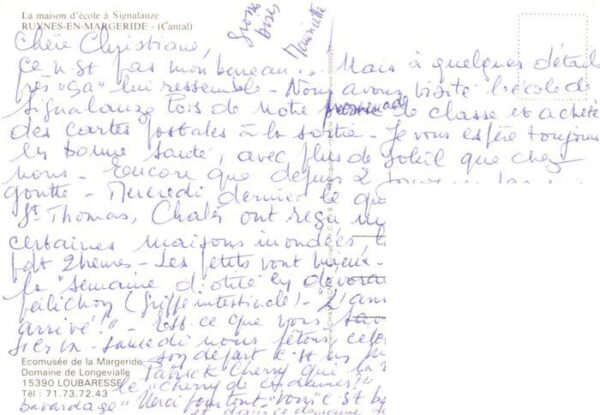 La maison d'école à Signalauze
RUYNES-EN-MARGERIDE - (Cantal)
Grosses
bises
Chère Christiane,
ce n'est pas mon bureau... Mais à quelques détails
près "ça" lui ressemble - Nous avons visité l'école de
Signalauze lors de notre promenade de classe et acheté
des cartes postales à la sortie - Je vous espère toujours
en bonne santé, avec plus de soleil que chez
nous - Encore que depuis 2 jours
goutte - Mercredi dernier le
St Thomas, Chalès ont reçu
certaines maisons inondées,
fait 2 heures - Les petits vont mieux -
la "semaine d'otite" en
(Griffe intestinale) - "L'ami
arrivé!" - Est-ce que vous
- Samedi nous fêtons
son départ
Patrick Cherry qui
le "Cherry de ces dames!"
bavardage" Merci pour tout
Ecomusée de la Margeride
Domaine de Longevialle
15390 LOUBARESSE
Tél : 71.73.72.43